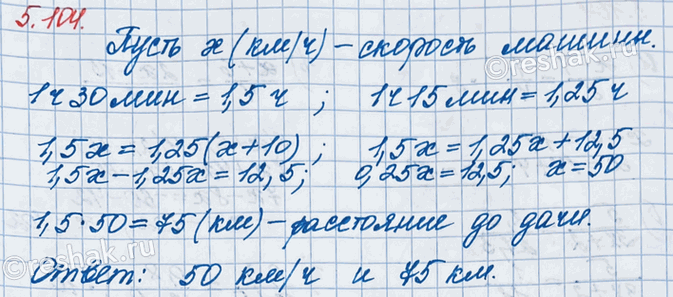 5.104.
Пусть x (км/ч) – скорость машин.
1ч 30мин = 1,5 ч ; 1ч 15мин = 1,25 ч
1,5x = 1,25(x+10) ; 1,5x = 1,25x + 12,5
1,5x – 1,25x = 12,5; 0,25x = 12,5; x = 50
1,5·50 = 75 (км) – расстояние до дачи.
Ответ: 50 км/ч и 75 км.
reshak.ru